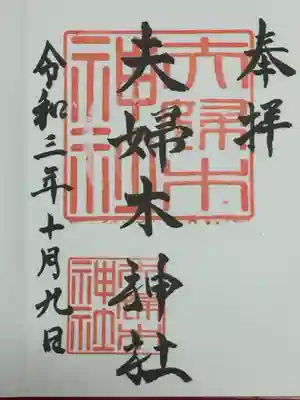 奉拝
夫婦木神社
令和三年十月九日
夫婦木
神社
夫婦木
神社